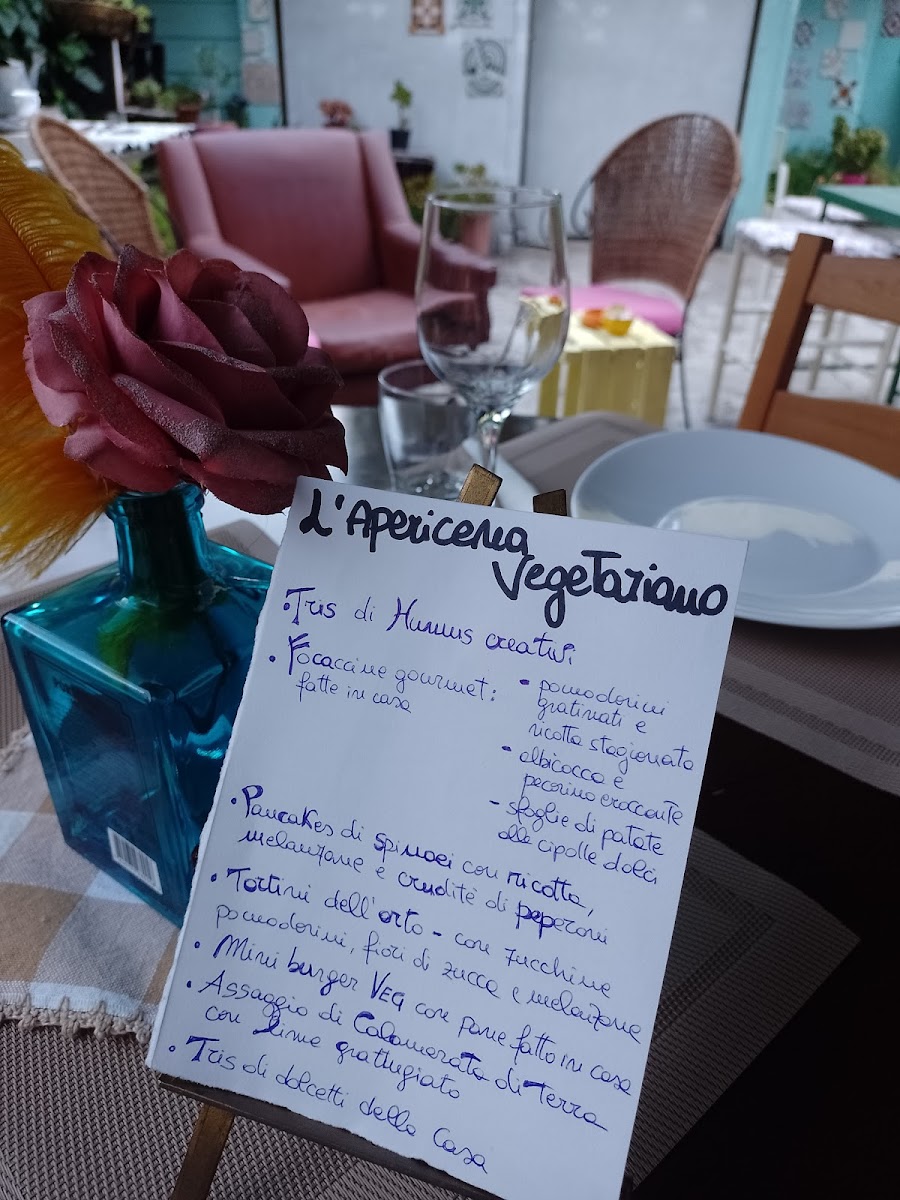 L'Apericena
Vegetariano
• Tris di Hummus creativi
• Focaccine gourmet:
fatte in casa
- pomodorini
gratinati e
ricotta stagionata
- albicocca e
pecorino croccante
- sfoglie di patate
alle cipolle dolci
• Pancakes di spinaci con ricotta,
melanzane e crudité di peperoni
• Tortini dell'orto - con zucchine
pomodorini, fiori di zucca e melanzane
• Mini burger VEG con pane fatto in casa
• Assaggio di Calamarata di Terra
con lime grattugiato
• Tris di dolcetti della Casa